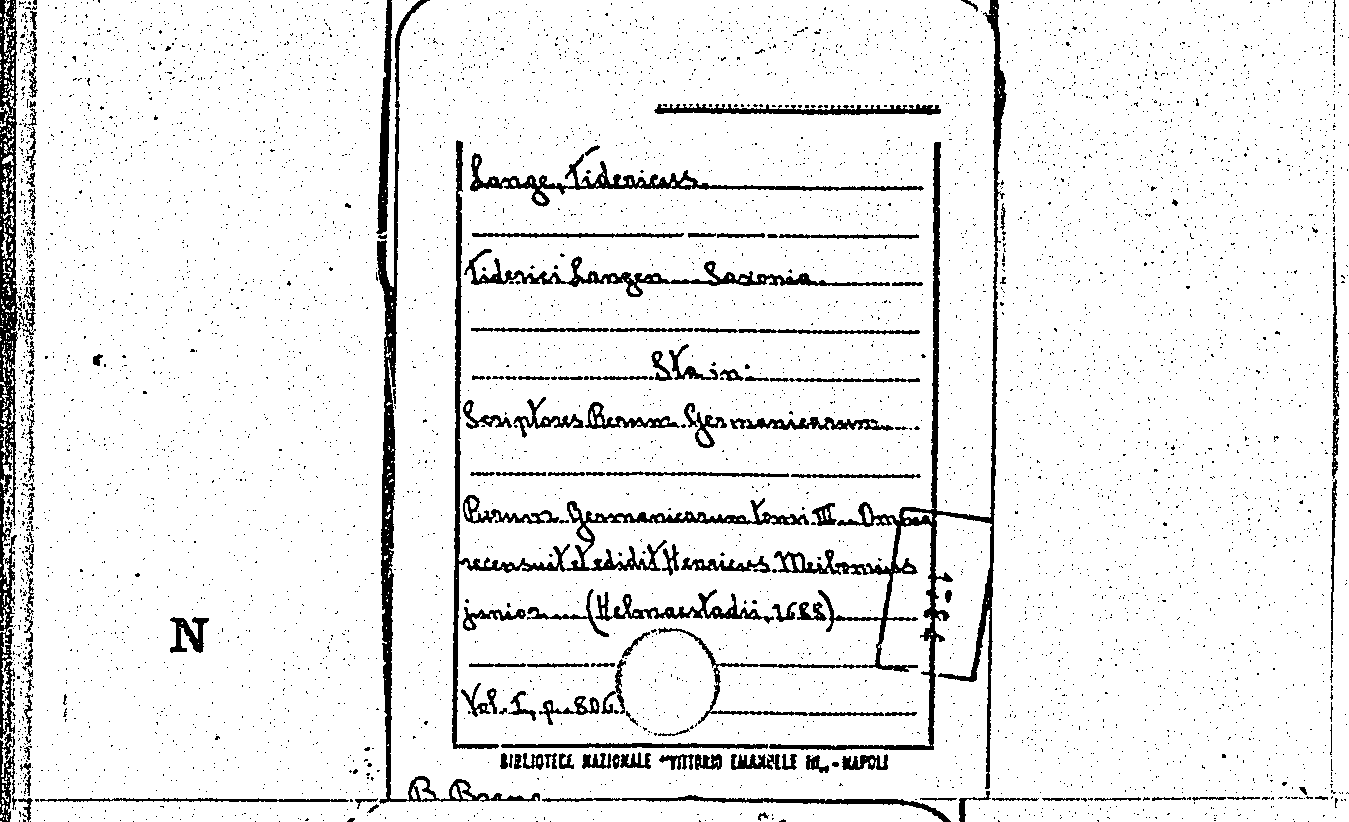 Lange, Tidericus
Tiderici Langen Saxonia
Sta in:
Scriptores Rerum Germanicarum
Rerum Germanicarum Tomi III. Omnia
recensuit et edidit Henricus Meibomius
junior (Helmaestadii, 1688)
Vol. I, p. 806
N
BIBLIOTECA NAZIONALE "VITTORIO EMANUELE III" - NAPOLI